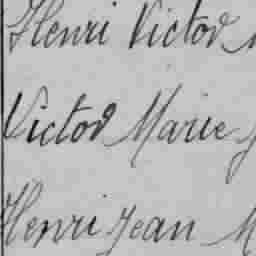 Henri Victor
Victor Marie
Henri Jean